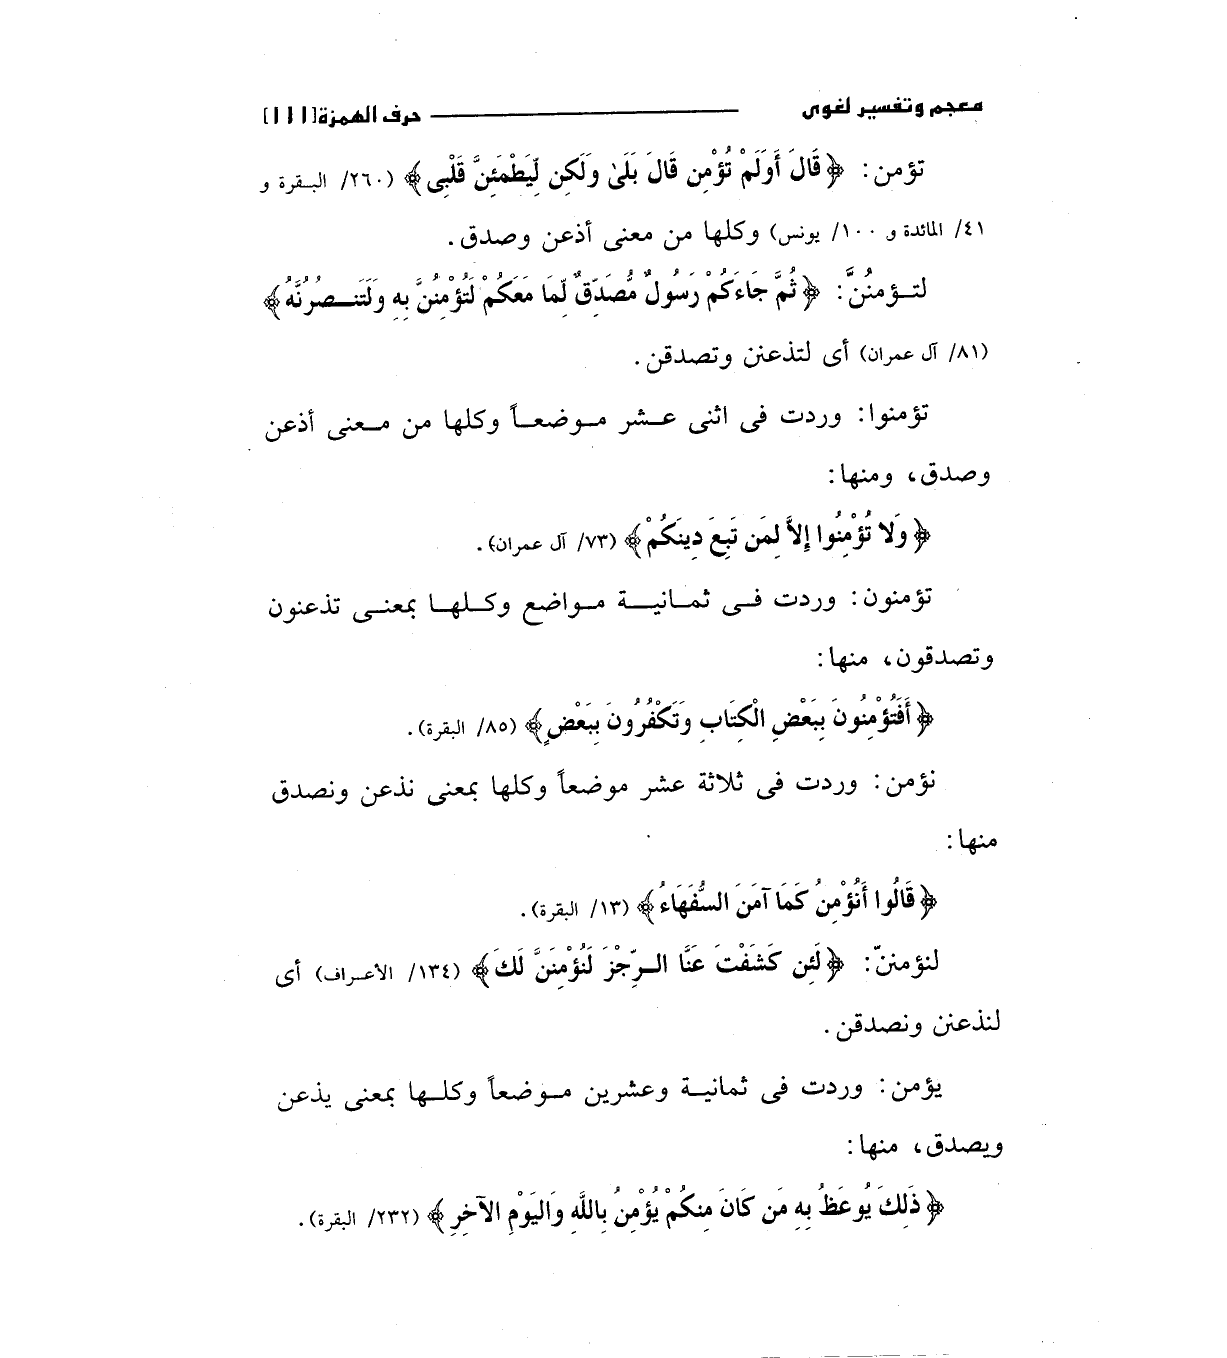 معجم وتفسير لغوى حرف الهمزة [١١١]
تؤمن: ﴿ قَالَ أَوَلَمْ تُؤْمِن قَالَ بَلَىٰ وَلَكِن لِّيَطْمَئِنَّ قَلْبِى ﴾ (٢٦٠/ البقرة و
٤١/ المائدة و ١٠٠/ يونس) وكلها من معنى أذعن وصدق.
لتؤمنُنَّ: ﴿ ثُمَّ جَاءَكُمْ رَسُولٌ مُّصَدِّقٌ لِّمَا مَعَكُمْ لَتُؤْمِنُنَّ بِهِ وَلَتَنصُرُنَّهُ ﴾
(٨١/ آل عمران) أى لتذعنن وتصدقن.
تؤمنوا: وردت فى اثنى عشر موضعاً وكلها من معنى أذعن
وصدق، ومنها:
﴿ وَلا تُؤْمِنُوا إِلاَّ لِمَن تَبِعَ دِينَكُمْ ﴾ (٧٣/ آل عمران).
تؤمنون: وردت فى ثمانية مواضع وكلها بمعنى تذعنون
وتصدقون، منها:
﴿ أَفَتُؤْمِنُونَ بِبَعْضِ الْكِتَابِ وَتَكْفُرُونَ بِبَعْضٍ ﴾ (٨٥/ البقرة).
نؤمن: وردت فى ثلاثة عشر موضعاً وكلها بمعنى نذعن ونصدق
منها:
﴿ قَالُوا أَنُؤْمِنُ كَمَا آمَنَ السُّفَهَاءُ ﴾ (١٣/ البقرة).
لنؤمننّ: ﴿ لَئِن كَشَفْتَ عَنَّا الرِّجْزَ لَنُؤْمِنَنَّ لَكَ ﴾ (١٣٤/ الأعراف) أى
لنذعنن ونصدقن.
يؤمن: وردت فى ثمانية وعشرين موضعاً وكلها بمعنى يذعن
ويصدق، منها:
﴿ ذَلِكَ يُوعَظُ بِهِ مَن كَانَ مِنكُمْ يُؤْمِنُ بِاللَّهِ وَالْيَوْمِ الآخِرِ ﴾ (٢٣٢/ البقرة).